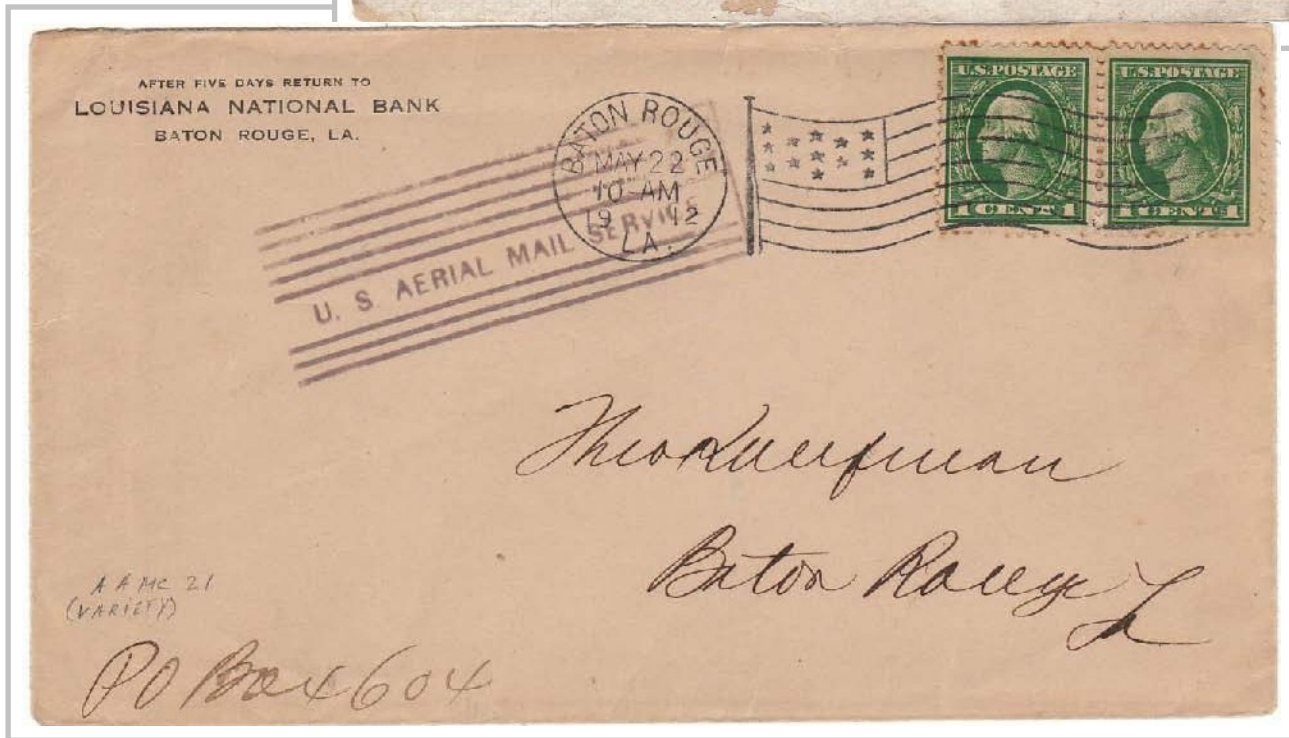 AFTER FIVE DAYS RETURN TO
LOUISIANA NATIONAL BANK
BATON ROUGE, LA.
BATON ROUGE
MAY 22
10-AM
19 12
LA.
U.S.POSTAGE
1 CENT 1
U.S.POSTAGE
1 CENT 1
U. S. AERIAL MAIL SERVICE
Theo Kauffman
Baton Rouge
AAMC 21
(VARIETY)
PO Box 604